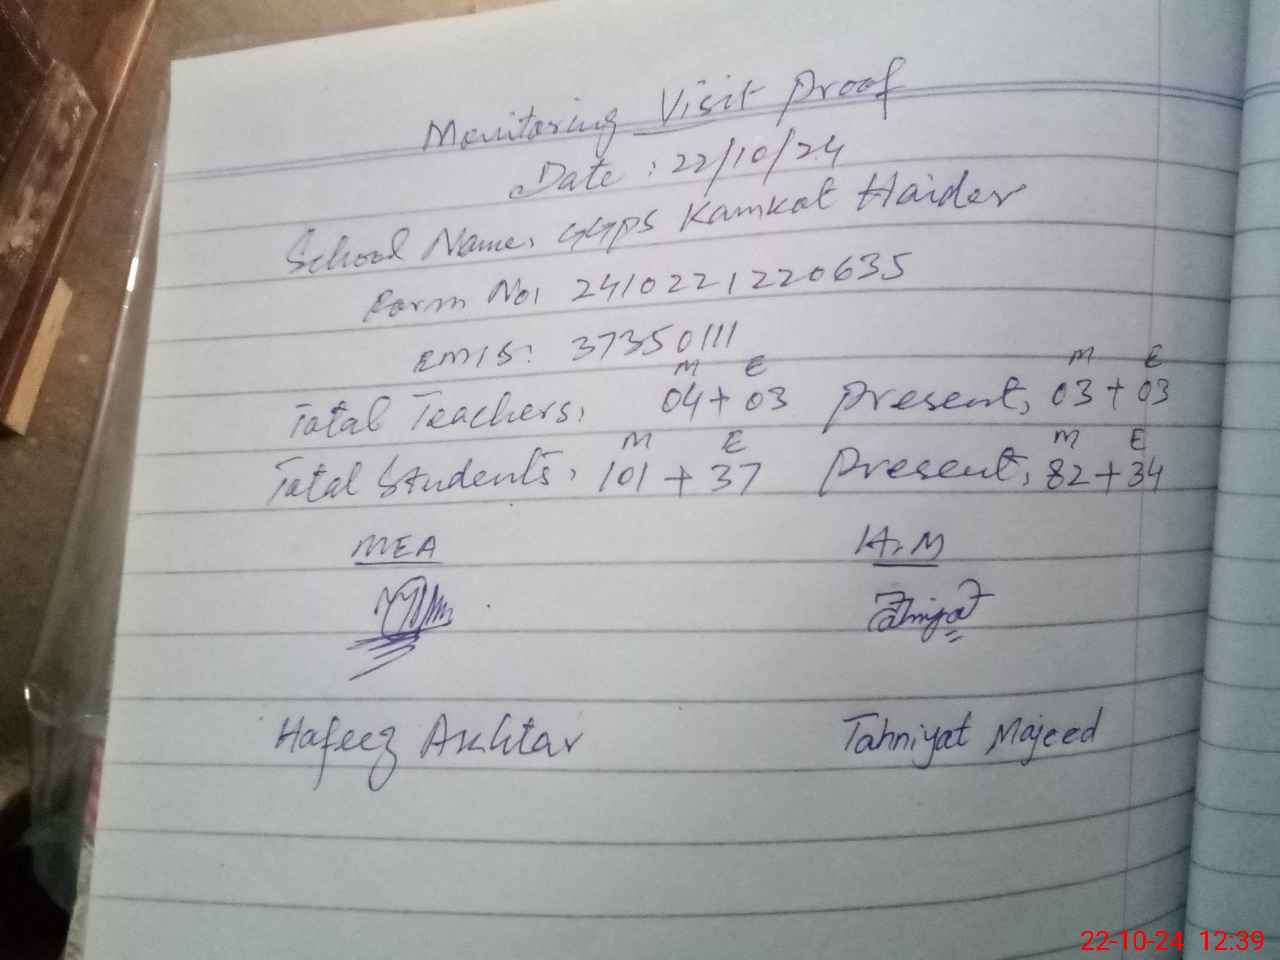 Monitoring Visit Proof
Date : 22/10/24
School Name: GGPS Kamkot Haider
Form No: 2410221220635
EMIS: 37350111
M E M E
Total Teachers: 04+03 Present: 03+03
M E M E
Total Students: 101+37 Present: 82+34
MEA H.M
Tahniyat
Hafeez Akhtar Tahniyat Majeed
22-10-24 12:39